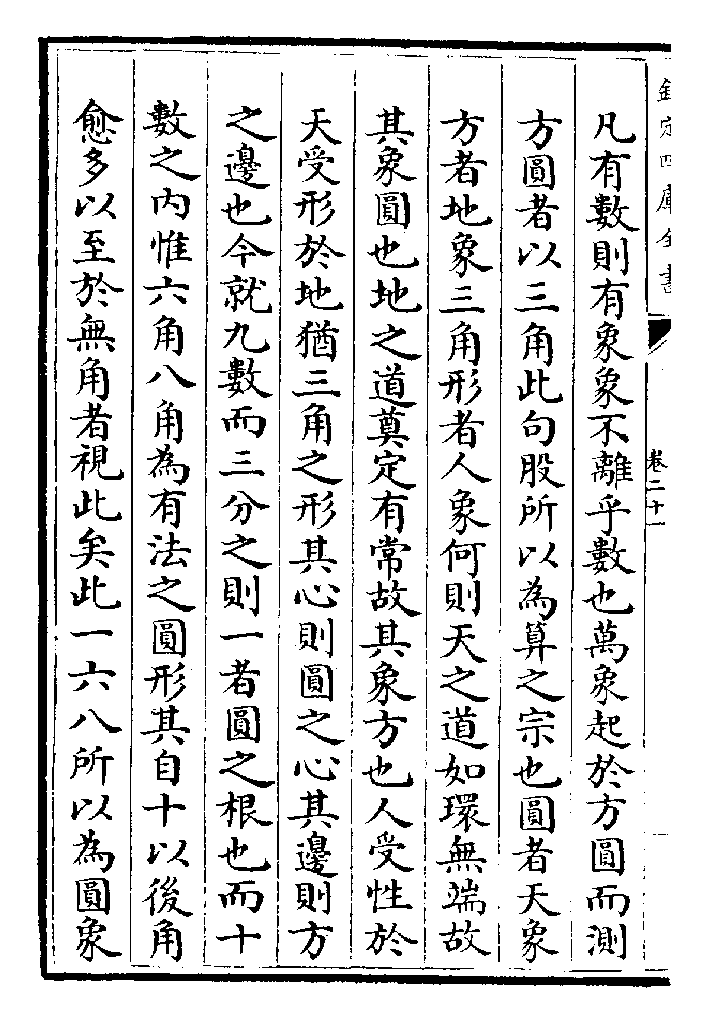 欽定四庫全書
卷二十一
凡有數則有象象不離乎數也萬象起於方圓而測
方圓者以三角此句股所以為算之宗也圓者天象
方者地象三角形者人象何則天之道如環無端故
其象圓也地之道奠定有常故其象方也人受性於
天受形於地猶三角之形其心則圓之心其邊則方
之邊也今就九數而三分之則一者圓之根也而十
數之內惟六角八角為有法之圓形其自十以後角
愈多以至於無角者視此矣此一六八所以為圓象